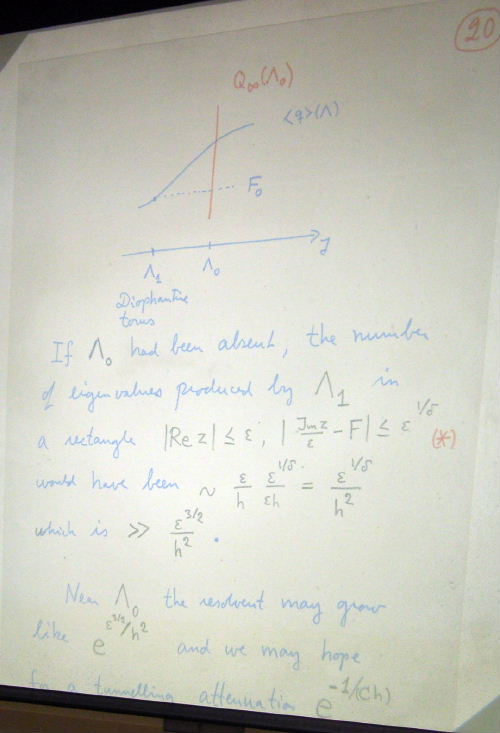 20
Q∞(Λ₀)
<q>(Λ)
F₀
J
Λ₁ Λ₀
Diophantine
torus
If Λ₀ had been absent, the number
of eigenvalues produced by Λ₁ in
a rectangle |Re z| ≤ ε, |Im z/ε − F| ≤ ε^{1/δ} (*)
would have been ~ ε/h ε^{1/δ}/εh = ε^{1/δ}/h²
which is >> ε^{3/2}/h².
Near Λ₀ the resolvent may grow
like e^{ε^{3/2}/h²} and we may hope
for a tunnelling attenuation e^{-1/(Ch)}